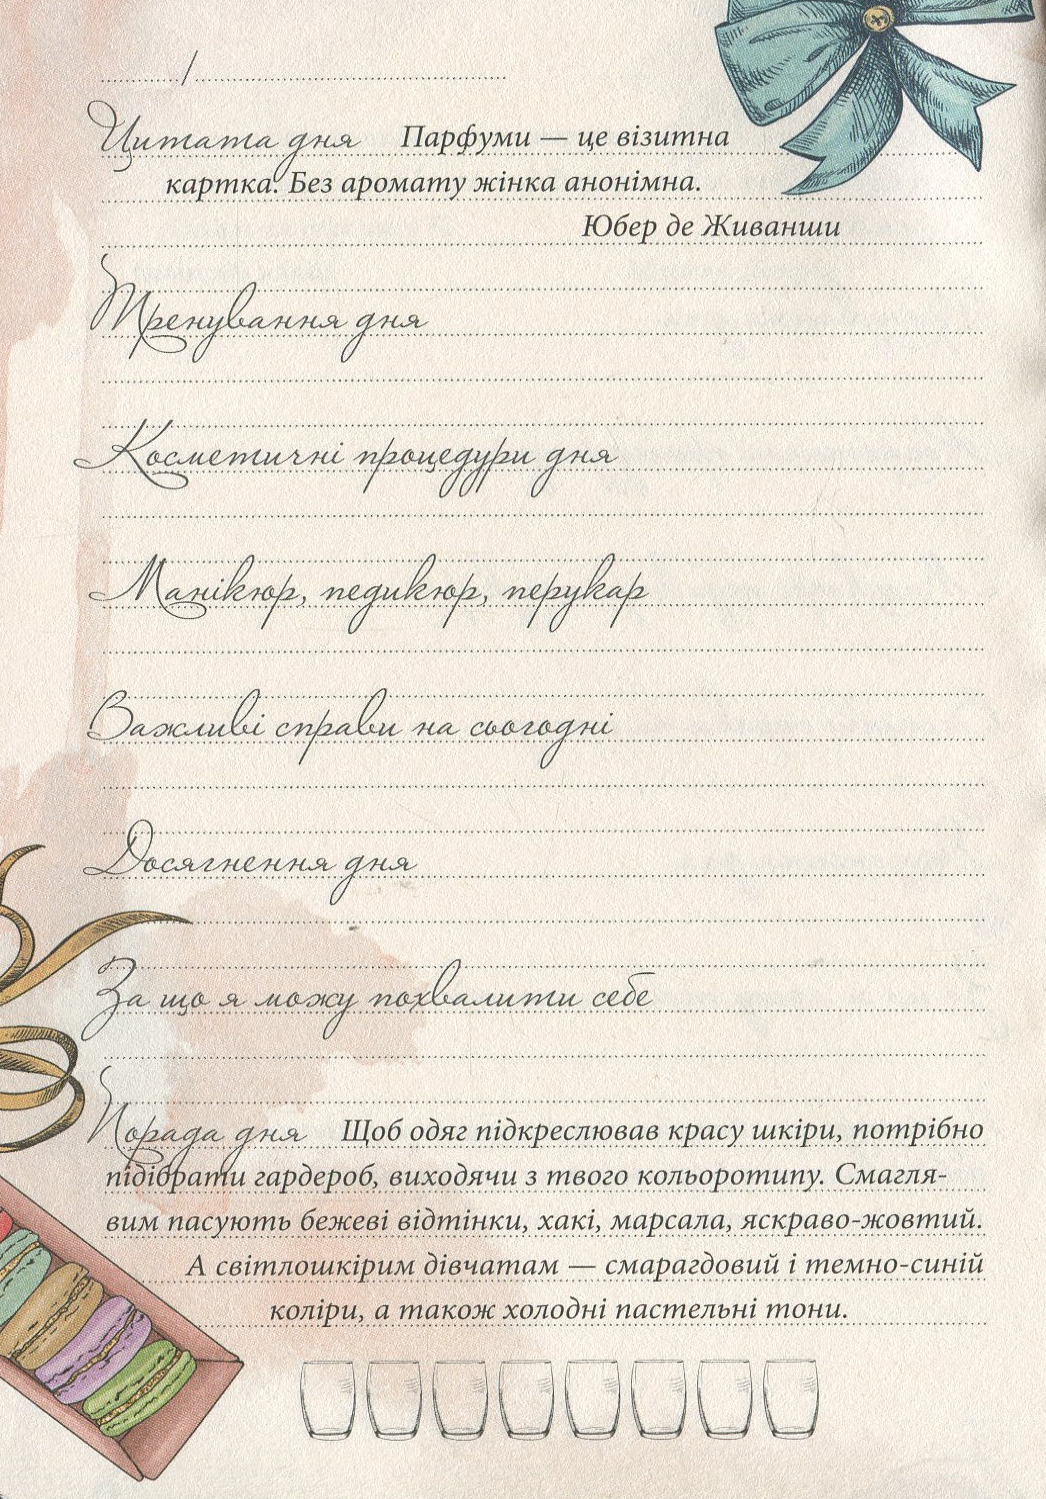 /
Цитата дня Парфуми — це візитна
картка. Без аромату жінка анонімна.
Юбер де Живанши
Тренування дня
Косметичні процедури дня
Манікюр, педикюр, перукар
Важливі справи на сьогодні
Досягнення дня
За що я можу похвалити себе
Порада дня Щоб одяг підкреслював красу шкіри, потрібно
підібрати гардероб, виходячи з твого кольоротипу. Смагля-
вим пасують бежеві відтінки, хакі, марсала, яскраво-жовтий.
А світлошкірим дівчатам — смарагдовий і темно-синій
коліри, а також холодні пастельні тони.